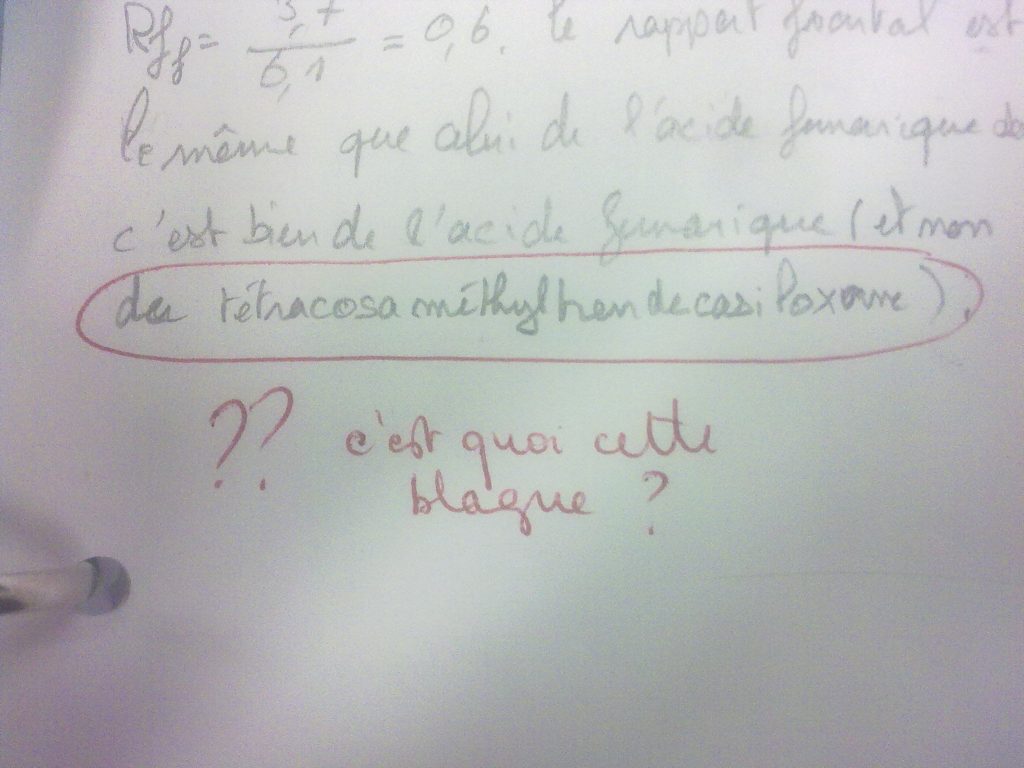 Rff = 3,7 / 6,1 = 0,6. le rapport frontal est
le même que celui de l'acide fumarique do
c'est bien de l'acide fumarique (et non
du tétracosaméthylhendecasiloxane).
?? c'est quoi cette
blague ?